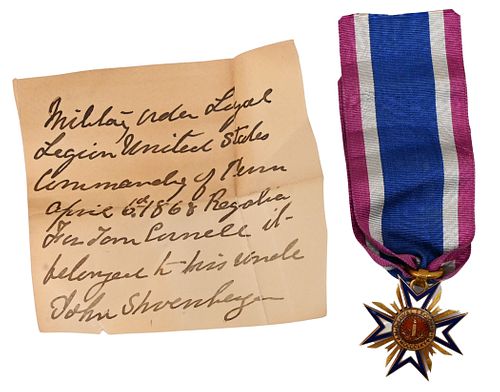 Military Order Loyal
Legion United States
Commandry of Penn
April 1868 Regalia
For Tom Cornell it
belonged to his Uncle
John Shoenberger
LOYAL LEGION